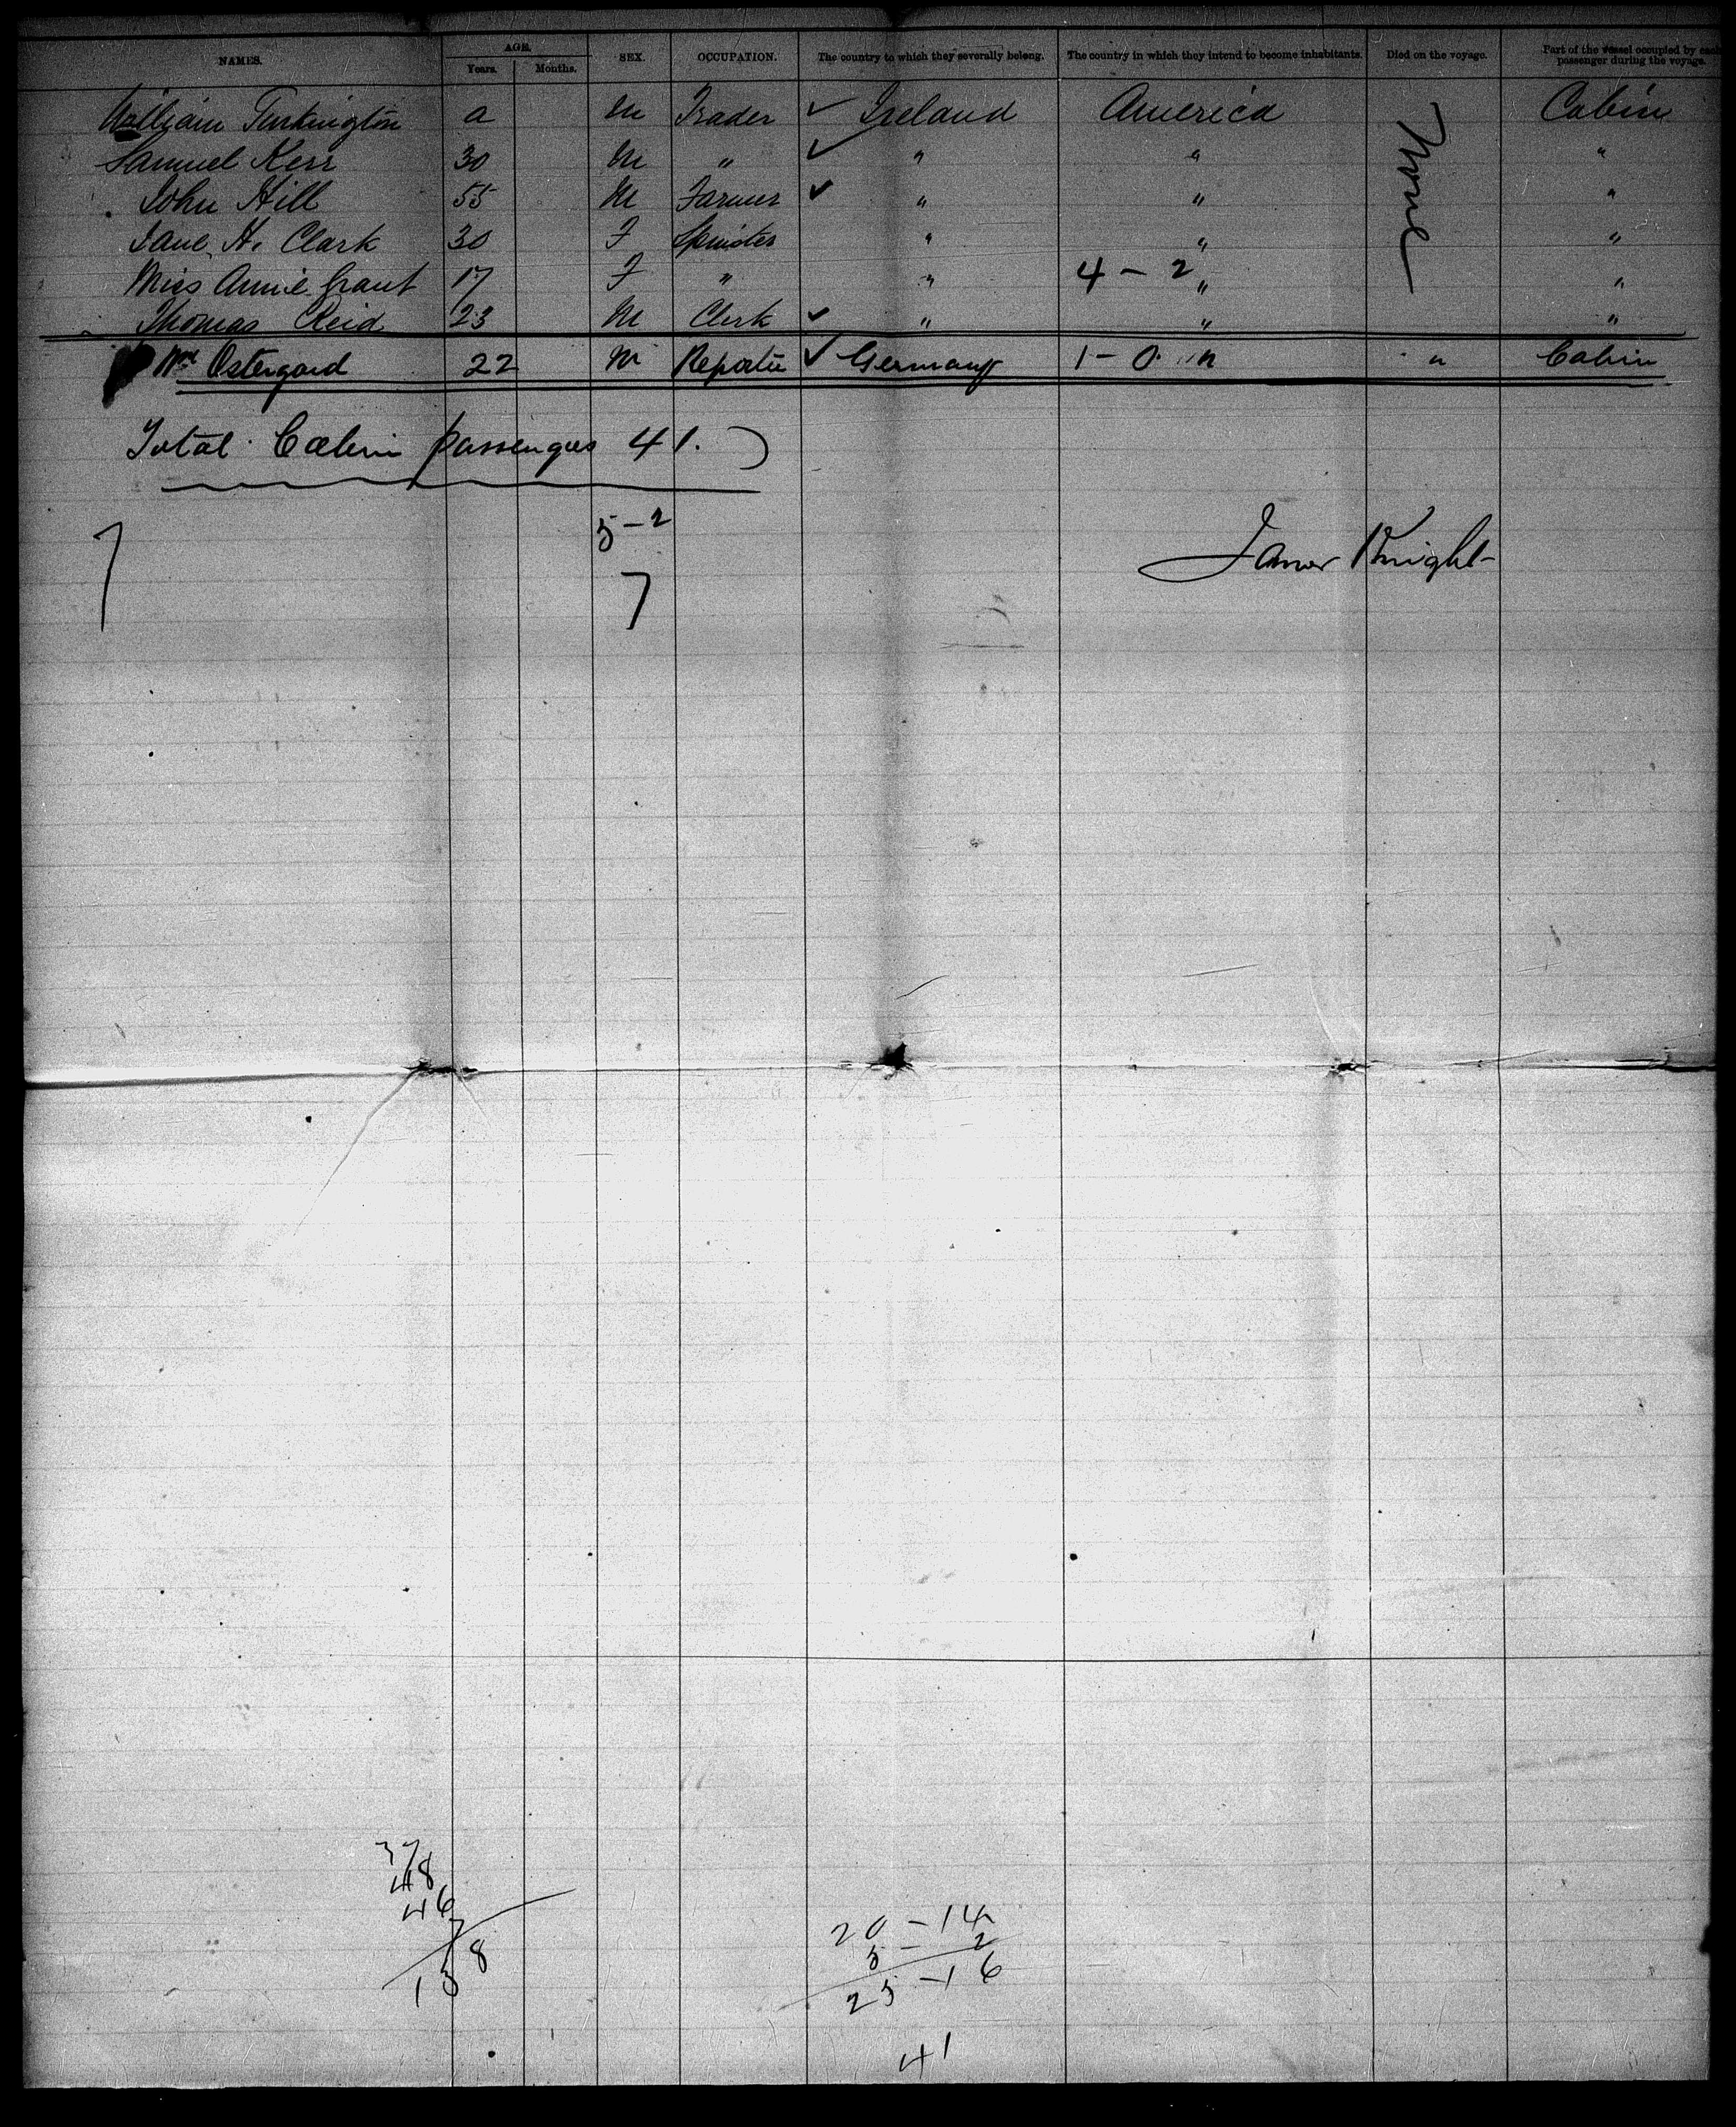 NAMES. AGE. SEX. OCCUPATION. The country to which they severally belong. The country in which they intend to become inhabitants. Died on the voyage. Part of the vessel occupied by each passenger during the voyage.
Years. Months.
William Turkington a M Trader ✓ Ireland America None Cabin
Samuel Kerr 30 M " ✓ " " "
John Hill 55 M Farmer ✓ " " "
Jane H. Clark 30 F Spinster " " "
Miss Annie Grant 17 F " " 4 - 2 " "
Thomas Reid 23 M Clerk ✓ " " "
Wm Ostergard 22 M Reporter ✓ Germany 1 - 0 " " Cabin
Total Cabin passengers 41.
5 - 2
James Knight
7 7
37
48
46
7
138
20 - 14
5 - 2
25 - 16
41